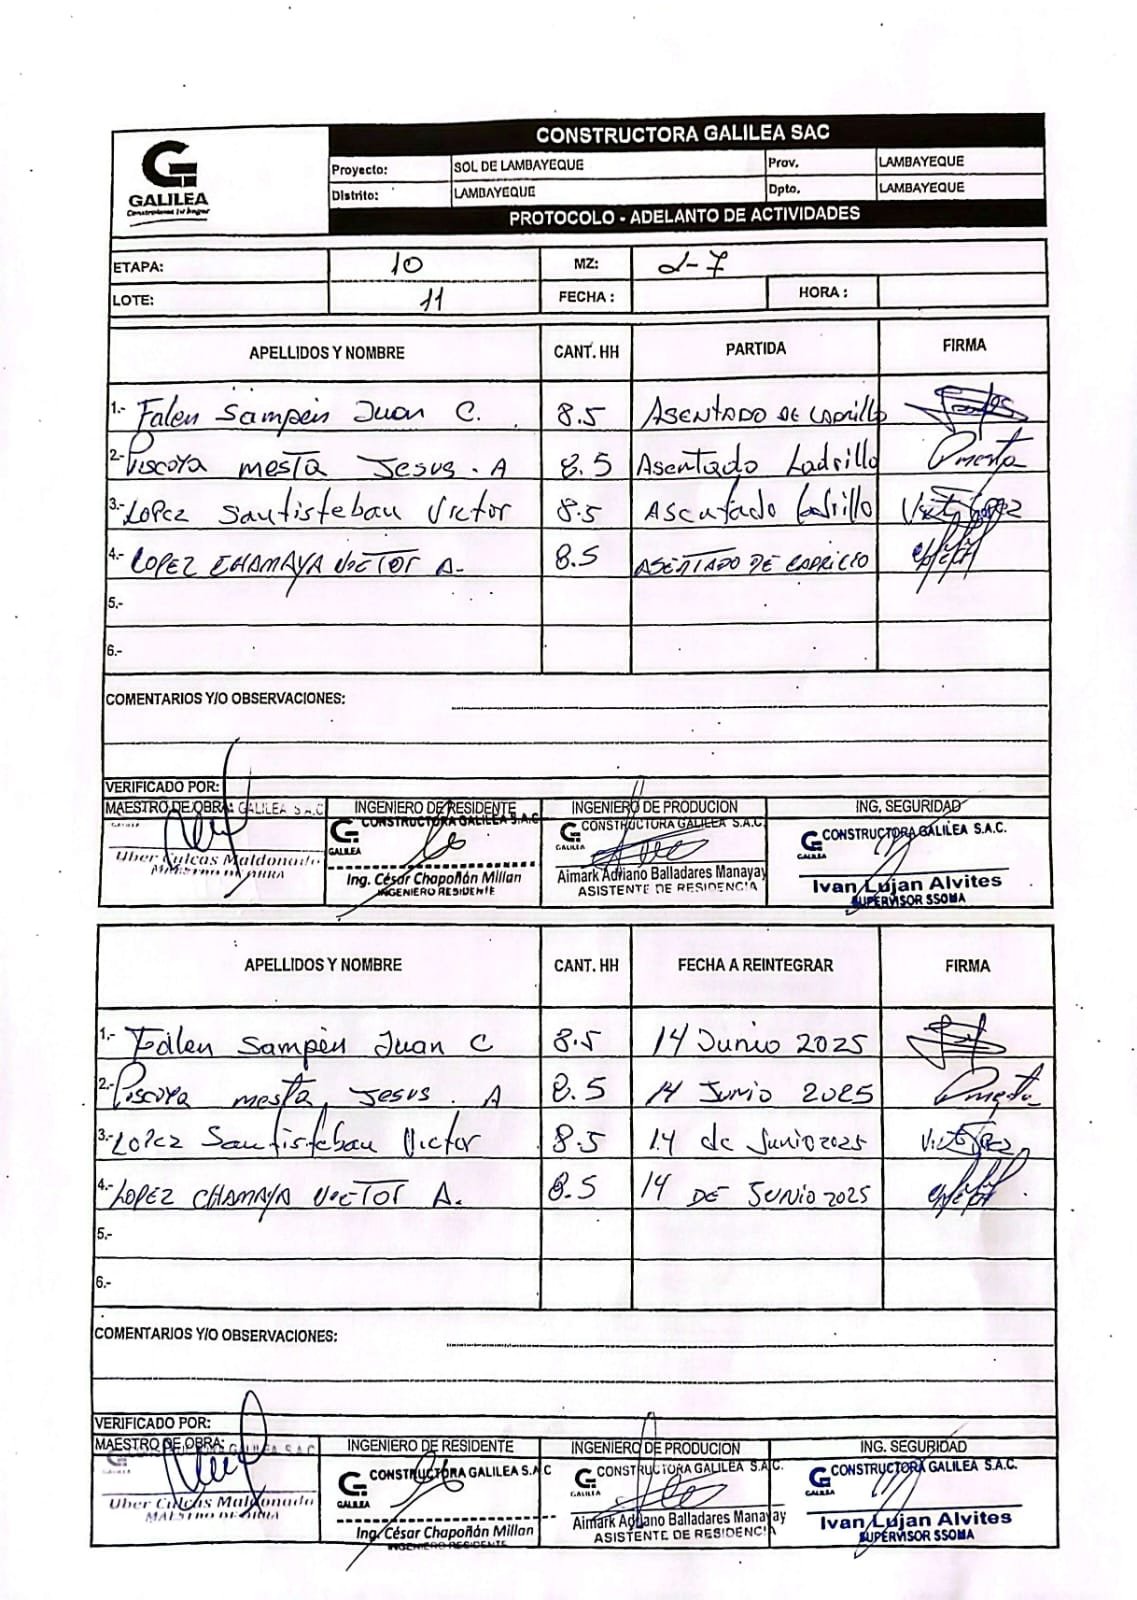 CONSTRUCTORA GALILEA SAC
GALILEA
Construimos tu hogar
Proyecto: SOL DE LAMBAYEQUE Prov. LAMBAYEQUE
Distrito: LAMBAYEQUE Dpto. LAMBAYEQUE
PROTOCOLO - ADELANTO DE ACTIVIDADES
ETAPA: 10 MZ: d-7
LOTE: 11 FECHA : HORA :
APELLIDOS Y NOMBRE CANT. HH PARTIDA FIRMA
1.- Falen Sampén Juan C. 8.5 ASENTADO DE LADRILLO
2.- Piscoya mesta Jesus. A 8.5 Asentado Ladrillo Pmesta
3.- LOPEZ Santisteban Victor 8.5 Asentado Ladrillo
4.- LOPEZ CHAMAYA VICTOR A. 8.5 ASENTADO DE LADRILLO
5.-
6.-
COMENTARIOS Y/O OBSERVACIONES:
VERIFICADO POR:
MAESTRO DE OBRA: GALILEA S A.C INGENIERO DE RESIDENTE INGENIERO DE PRODUCION ING. SEGURIDAD
CONSTRUCTORA GALILEA S.A.C CONSTRUCTORA GALILEA S.A.C. CONSTRUCTORA GALILEA S.A.C.
GALILEA GALILEA GALILEA
Uber Culcas Maldonado Ing. César Chapoñán Millan Aimark Adriano Balladares Manayay Ivan Lujan Alvites
MAESTRO DE OBRA INGENIERO RESIDENTE ASISTENTE DE RESIDENCIA SUPERVISOR SSOMA
APELLIDOS Y NOMBRE CANT. HH FECHA A REINTEGRAR FIRMA
1.- Falen Sampén Juan C 8.5 14 Junio 2025
2.- Piscoya mesta Jesus. A 8.5 14 Junio 2025 Pmesta
3.- LOPEZ Santisteban Victor 8.5 14 de Junio 2025
4.- LOPEZ CHAMAYA VICTOR A. 8.5 14 DE JUNIO 2025
5.-
6.-
COMENTARIOS Y/O OBSERVACIONES:
VERIFICADO POR:
MAESTRO DE OBRA: GALILEA S A C INGENIERO DE RESIDENTE INGENIERO DE PRODUCION ING. SEGURIDAD
CONSTRUCTORA GALILEA S.A C CONSTRUCTORA GALILEA S.A.C. CONSTRUCTORA GALILEA S.A.C.
GALILEA GALILEA GALILEA
Uber Culcas Maldonado Ing. César Chapoñán Millan Aimark Adriano Balladares Manayay Ivan Lujan Alvites
MAESTRO DE OBRA INGENIERO RESIDENTE ASISTENTE DE RESIDENCIA SUPERVISOR SSOMA